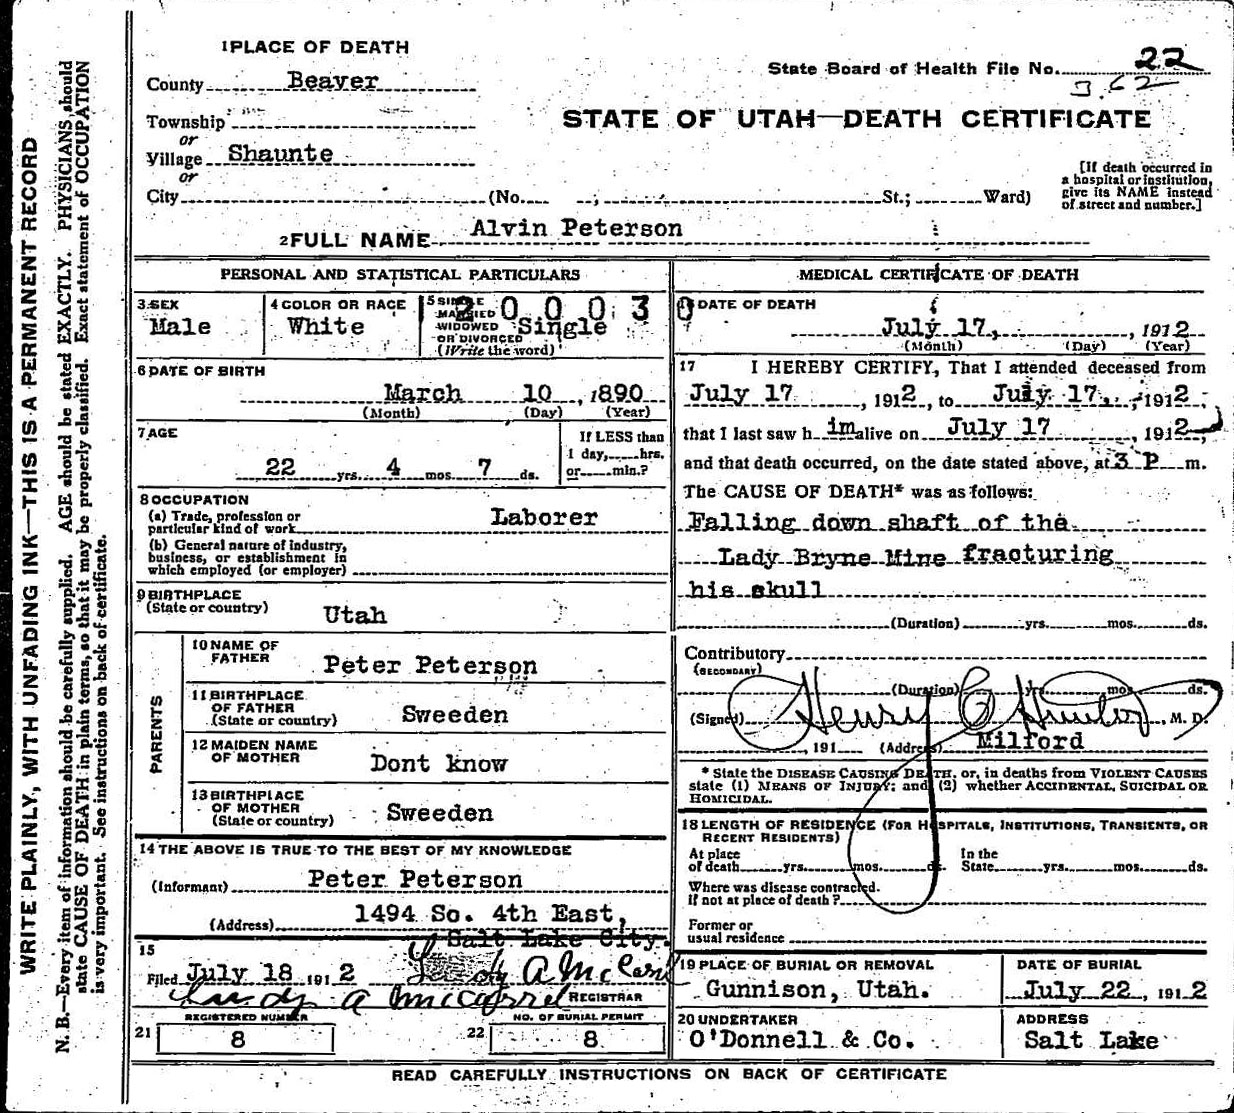 WRITE PLAINLY, WITH UNFADING INK—THIS IS A PERMANENT RECORD
N. B.—Every item of information should be carefully supplied. AGE should be stated EXACTLY. PHYSICIANS should
state CAUSE OF DEATH in plain terms, so that it may be properly classified. Exact statement of OCCUPATION
is very important. See instructions on back of certificate.
1 PLACE OF DEATH
County Beaver
Township
or
Village Shaunte
or
City (No. ; St.; Ward)
State Board of Health File No. 22
362
STATE OF UTAH—DEATH CERTIFICATE
[If death occurred in
a hospital or institution,
give its NAME instead
of street and number.]
2 FULL NAME Alvin Peterson
PERSONAL AND STATISTICAL PARTICULARS
3 SEX
Male
4 COLOR OR RACE
White
5 SINGLE
MARRIED
WIDOWED
OR DIVORCED
(Write the word)
Single
200030
6 DATE OF BIRTH
March 10, 1890
(Month) (Day) (Year)
7 AGE
22 yrs. 4 mos. 7 ds.
If LESS than
1 day, hrs.
or min.?
8 OCCUPATION
(a) Trade, profession or
particular kind of work Laborer
(b) General nature of industry,
business, or establishment in
which employed (or employer)
9 BIRTHPLACE
(State or country)
Utah
PARENTS
10 NAME OF
FATHER
Peter Peterson
11 BIRTHPLACE
OF FATHER
(State or country)
Sweeden
12 MAIDEN NAME
OF MOTHER
Dont know
13 BIRTHPLACE
OF MOTHER
(State or country)
Sweeden
14 THE ABOVE IS TRUE TO THE BEST OF MY KNOWLEDGE
(Informant) Peter Peterson
(Address) 1494 So. 4th East,
Salt Lake City.
15
Filed July 18 1912
A McCarrel
REGISTRAR
REGISTERED NUMBER
21 8
NO. OF BURIAL PERMIT
22 8
MEDICAL CERTIFICATE OF DEATH
DATE OF DEATH
July 17, , 1912
(Month) (Day) (Year)
17 I HEREBY CERTIFY, That I attended deceased from
July 17 , 1912, to July 17, , 1912,
that I last saw h im alive on July 17 , 1912,
and that death occurred, on the date stated above, at 3 P m.
The CAUSE OF DEATH* was as follows:
Falling down shaft of the
Lady Bryne Mine fracturing
his skull
(Duration) yrs. mos. ds.
Contributory
(SECONDARY)
(Duration) yrs. mos. ds.
(Signed) Henry , M. D.
, 191 (Address) Milford
* State the DISEASE CAUSING DEATH, or, in deaths from VIOLENT CAUSES
state (1) MEANS OF INJURY; and (2) whether ACCIDENTAL, SUICIDAL OR
HOMICIDAL.
18 LENGTH OF RESIDENCE (FOR HOSPITALS, INSTITUTIONS, TRANSIENTS, OR
RECENT RESIDENTS)
At place
of death yrs. mos. ds.
In the
State yrs. mos. ds.
Where was disease contracted.
If not at place of death?
Former or
usual residence
19 PLACE OF BURIAL OR REMOVAL
Gunnison, Utah.
DATE OF BURIAL
July 22, 1912
20 UNDERTAKER
O'Donnell & Co.
ADDRESS
Salt Lake
READ CAREFULLY INSTRUCTIONS ON BACK OF CERTIFICATE